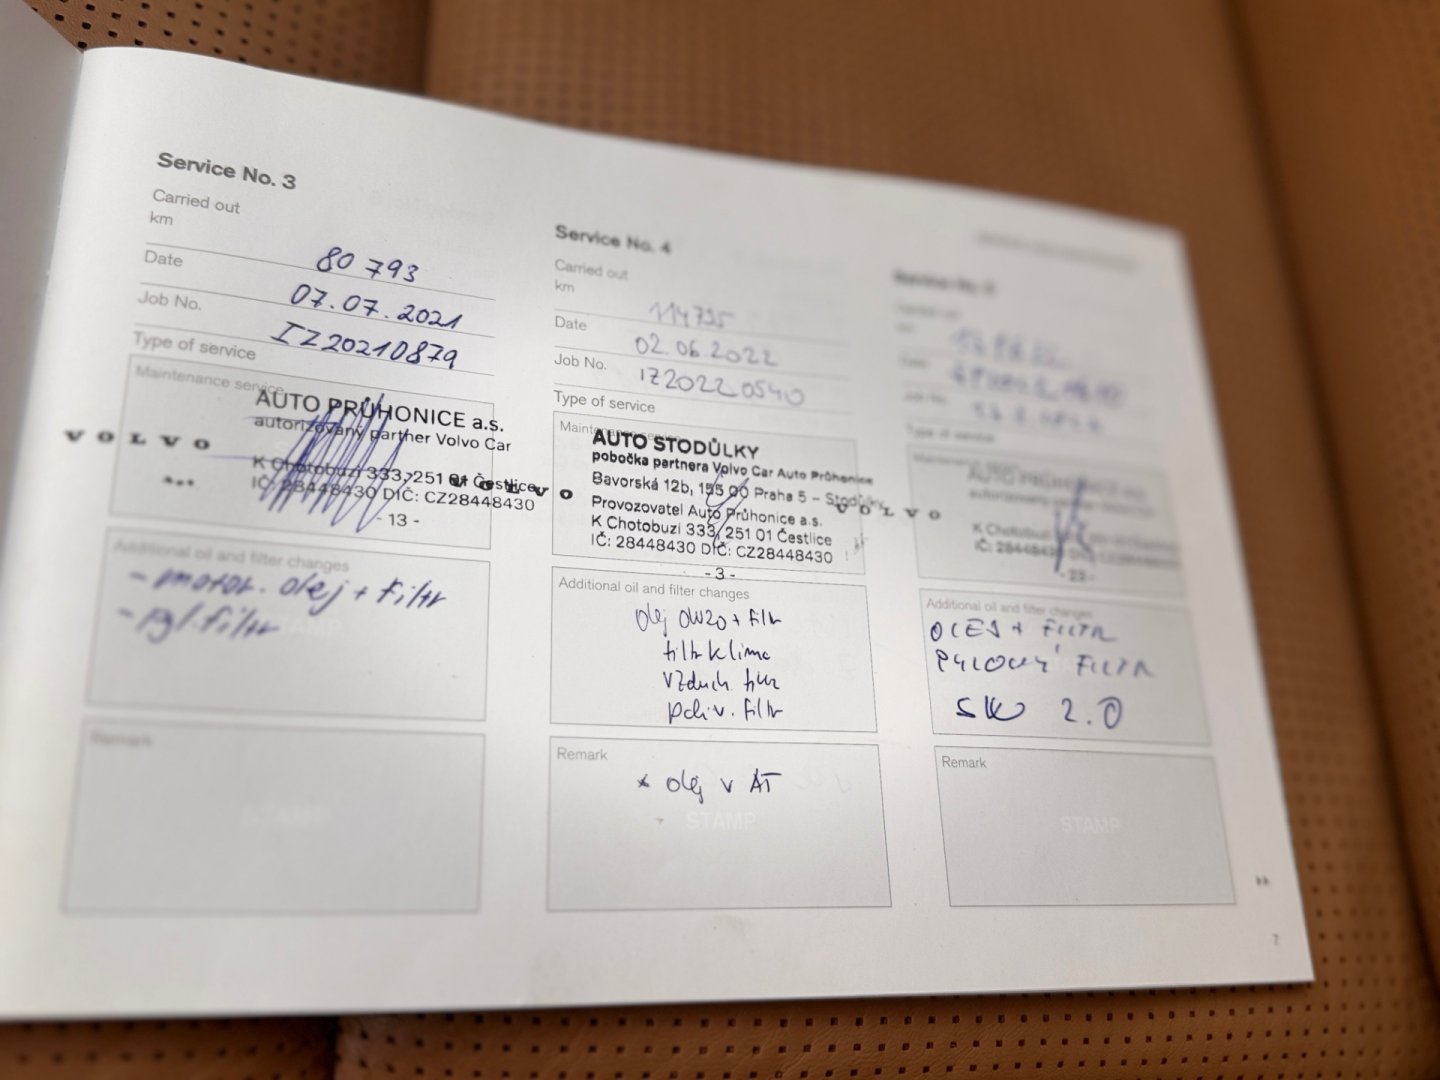 Service No. 3
Carried out
km
80 793
Date
07.07.2021
Job No.
IZ20210879
Type of service
Maintenance service
AUTO PRŮHONICE a.s.
autorizovaný partner Volvo Car
VOLVO
K Chotobuzi 333, 251 01 Čestlice
IČ: 28448430 DIČ: CZ28448430
- 13 -
Additional oil and filter changes
- motor. olej + filtr
- pyl. filtr
STAMP
Remark
STAMP
Service No. 4
Carried out
km
Date
02.06.2022
Job No.
IZ20220540
Type of service
AUTO STODŮLKY
pobočka partnera Volvo Car Auto Průhonice
Bavorská 12b, 155 00 Praha 5 – Stodůlky
VOLVO
Provozovatel Auto Průhonice a.s.
K Chotobuzi 333, 251 01 Čestlice
IČ: 28448430 DIČ: CZ28448430
- 3 -
Additional oil and filter changes
olej 0W20 + filtr
filtr klima
vzduch. filtr
Remark
* olej v AT
STAMP
Service No.
Type of service
VOLVO
AUTO PRŮHONICE
K Chotobuzi
IČ: 28448430
- 23 -
Additional oil and filter changes
OLEJ + FILTR
PYLOVÝ FILTR
SW 2.0
Remark
STAMP
7